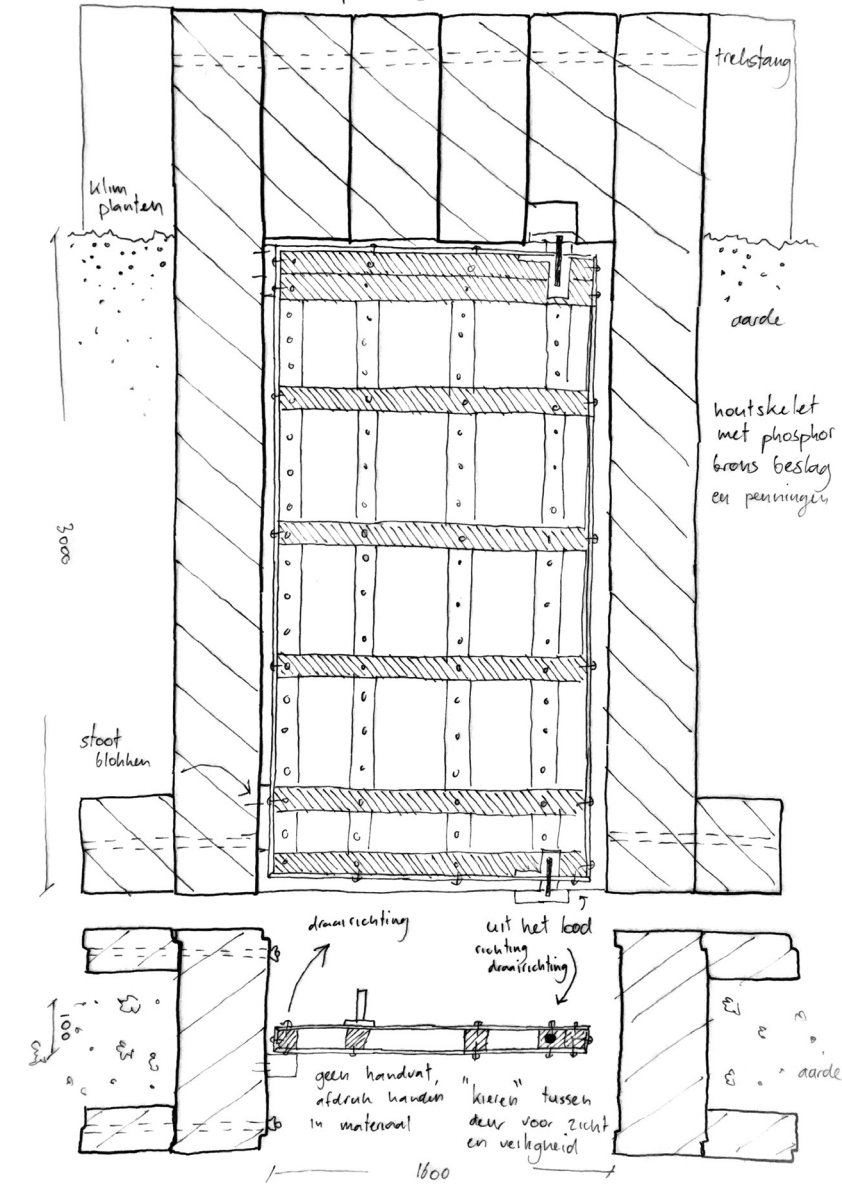 trekstang
klim
planten
aarde
houtskelet
met phosphor
brons beslag
en penningen
3000
stoot
blokken
draairichting
uit het lood
richting
draairichting
100
aarde
geen handvat,
afdruk handen
in materiaal
"kieren" tussen
deur voor zicht
en veiligheid
1600